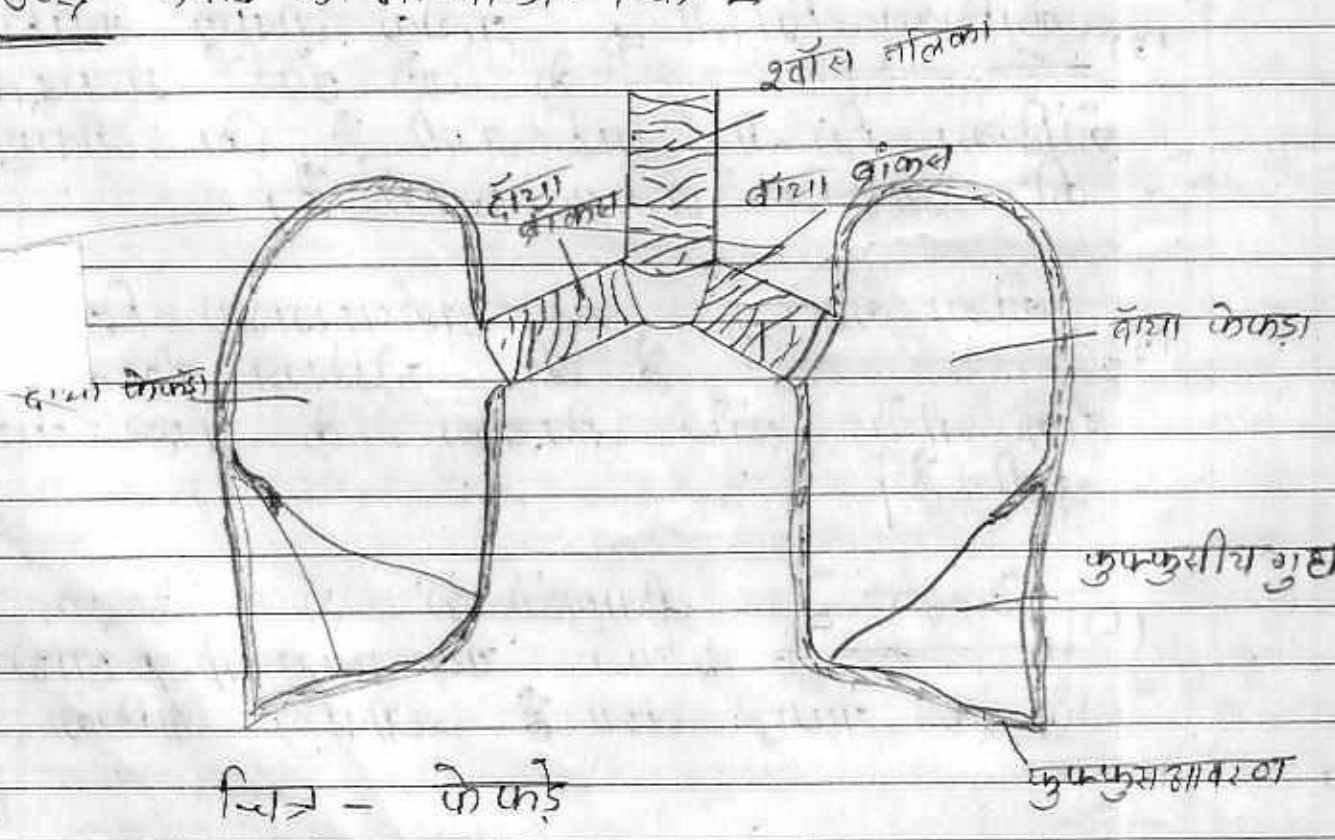 श्वाँस नलिका
दाँया
ब्रांकस
बाँया ब्रांकस
बाँया फेफड़ा
दाँया फेफड़ा
फुफ्फुसीय गुहा
फुफ्फुस आवरण
चित्र - फेफड़े